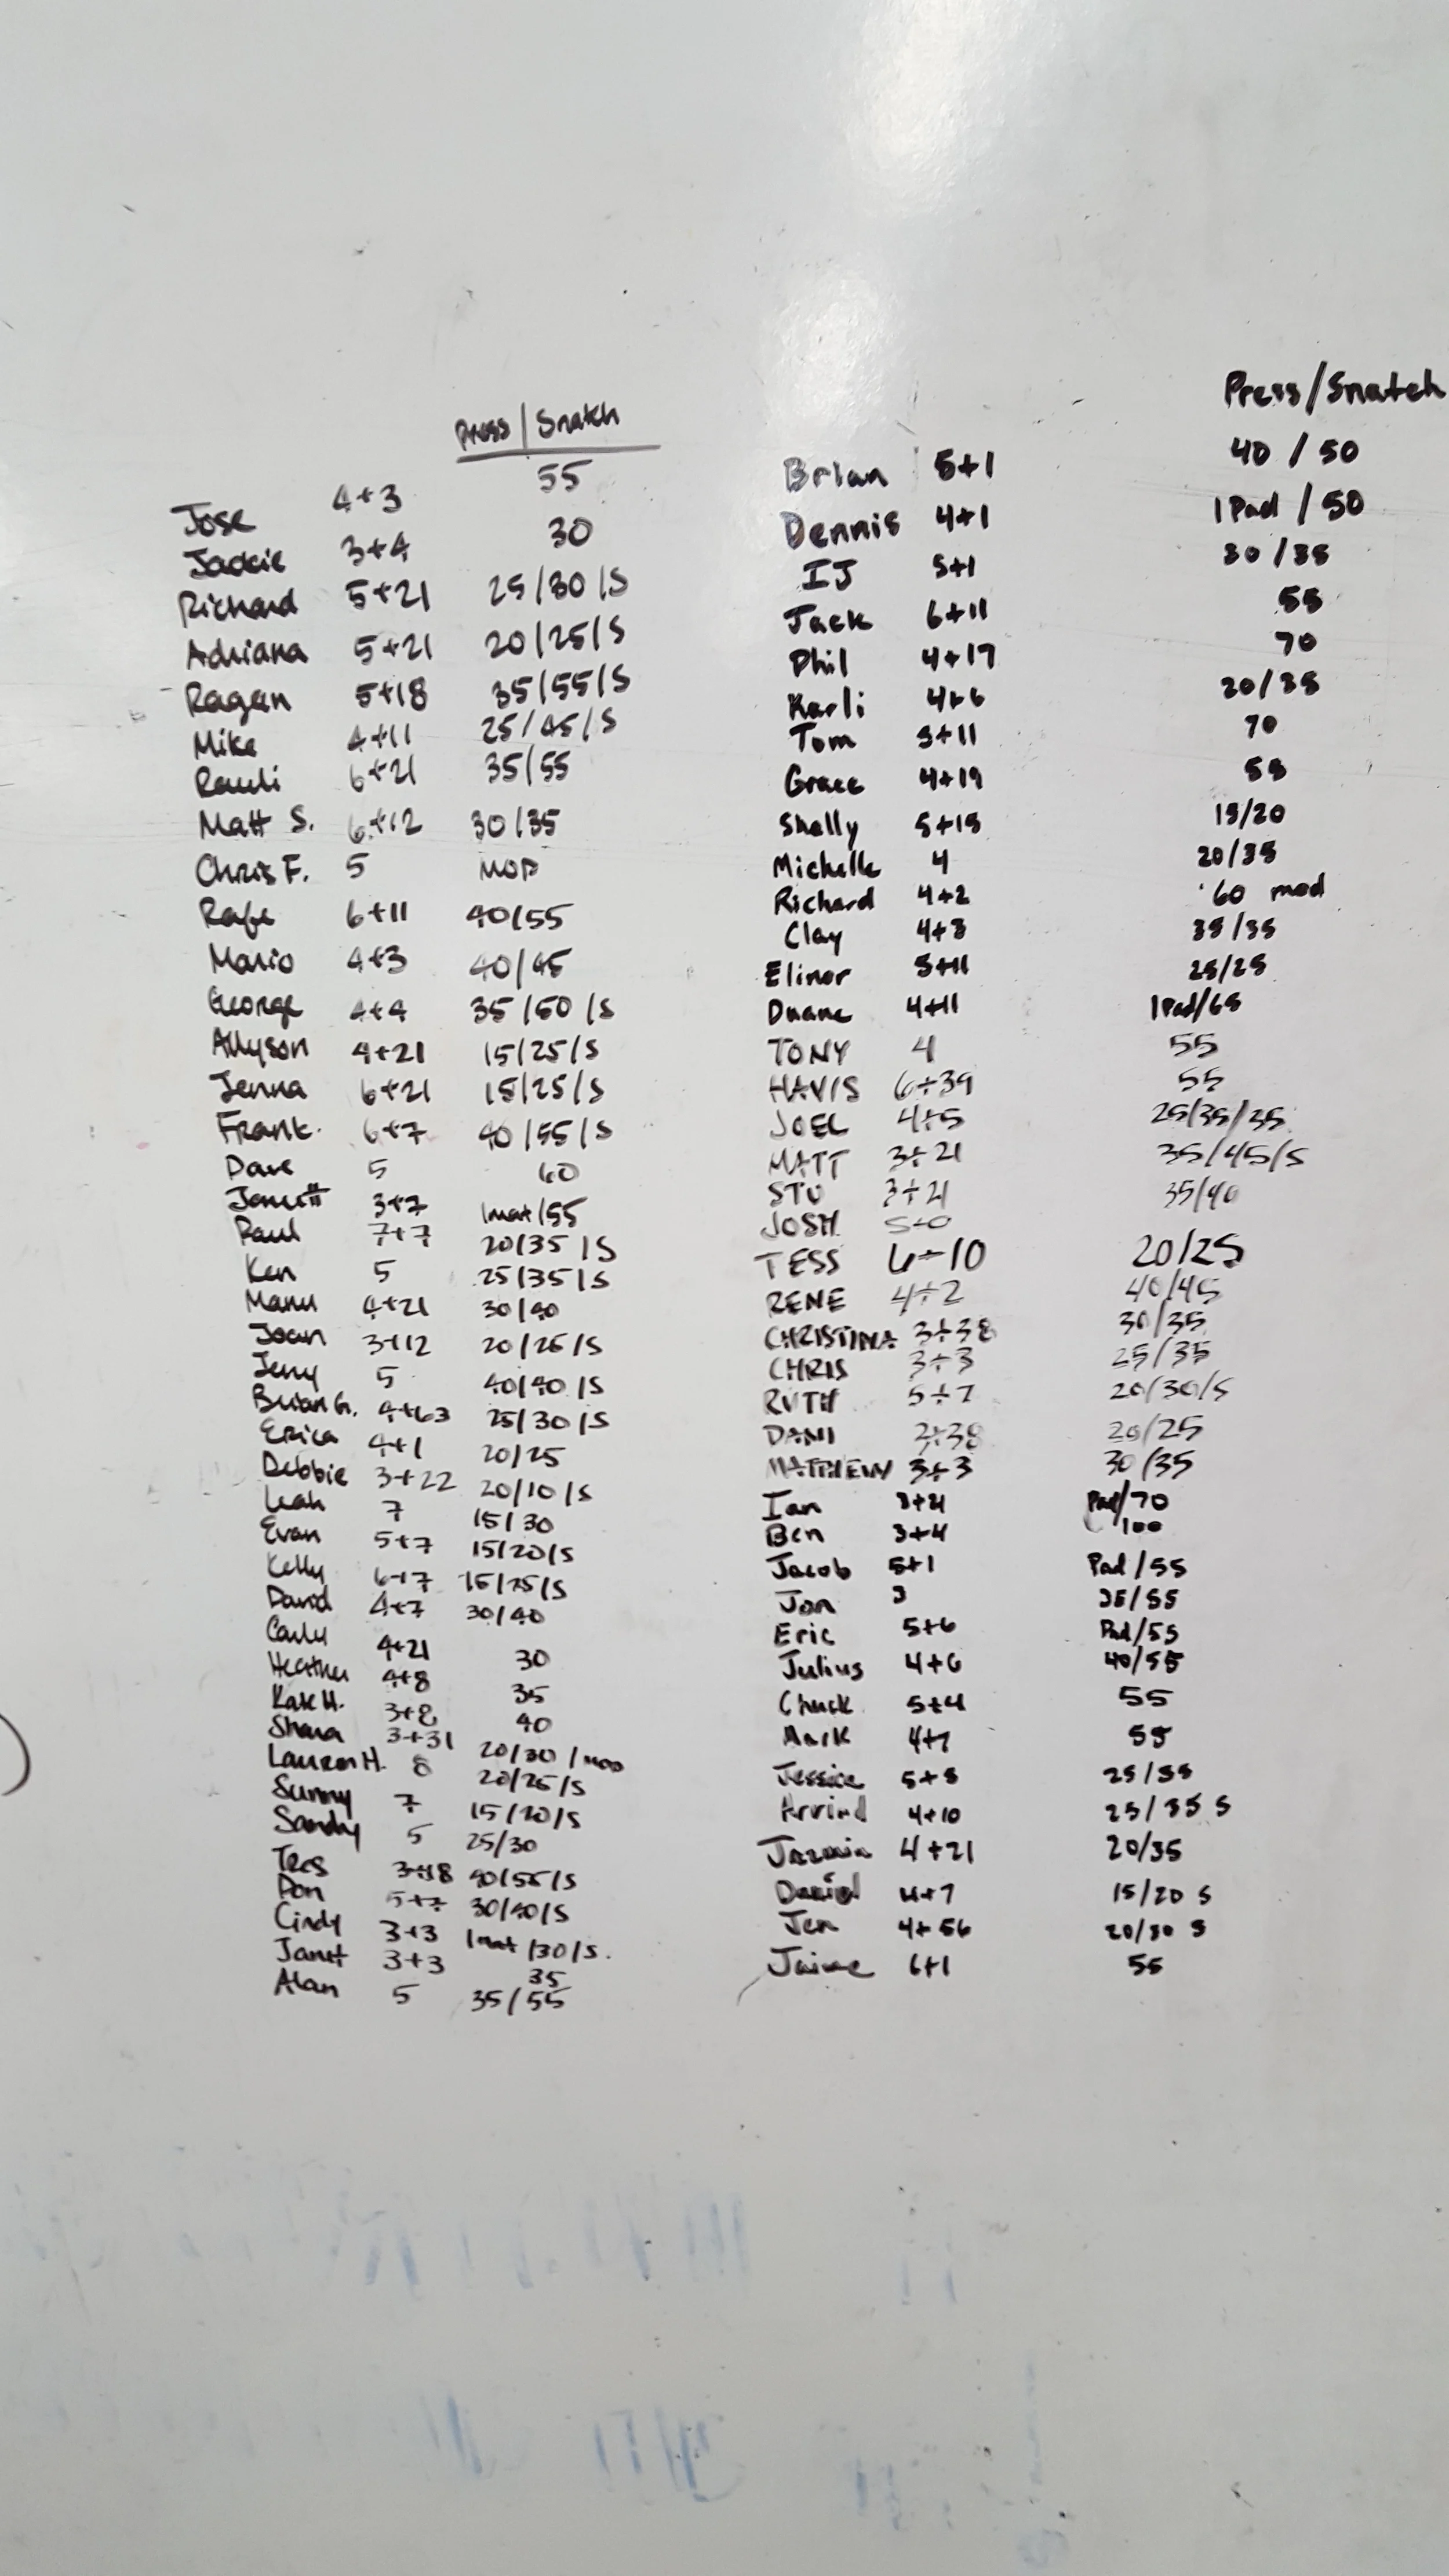 Press | Snatch
Jose 4+3 55
Jackie 3+4 30
Richard 5+21 25/30/S
Adriana 5+21 20/25/S
Ragan 5+18 35/55/S
Mike 4+11 25/45/S
Rauli 6+21 35/55
Matt S. 6+12 30/35
Chris F. 5 MOD
Rafe 6+11 40/55
Mario 4+3 40/45
George 4+4 35/50/S
Allyson 4+21 15/25/S
Jenna 6+21 15/25/S
Frank 6+7 40/55/S
Dave 5 60
3+7 1mat/55
Paul 7+7 20/35/S
Ken 5 25/35/S
Manu 4+21 30/40
Joan 3+12 20/25/S
Jerry 5 40/40/S
Brian G. 4+63 25/30/S
Erica 4+1 20/25
Debbie 3+22 20/10/S
Leah 7 15/30
Evan 5+7 15/20/S
Kelly 6+7 15/25/S
David 4+7 30/40
Carly 4+21 30
Heather 4+8 35
Kate H. 3+8 40
Shana 3+31 20/30/mod
Lauren H. 8 20/25/S
Sunny 7 15/20/S
Sandy 5 25/30
Tres 3+18 40/55/S
Don 5+7 30/40/S
Cindy 3+3 1mat/30/S.
Janet 3+3 35
Alan 5 35/55
Press/Snatch
Brian 5+1 40/50
Dennis 4+1 1Pad/50
IJ 5+1 30/35
Jack 6+11 55
Phil 4+17 70
Karli 4+6 20/35
Tom 5+11 70
Grace 4+19 55
Shelly 5+15 15/20
Michelle 4 20/35
Richard 4+2 60 mod
Clay 4+3 35/35
Elinor 5+11 25/25
Duane 4+11 1Pad/65
TONY 4 55
HAVIS 6+39 55
JOEL 4+5 25/35/35
MATT 3+21 35/45/S
STU 3+21 35/40
JOSH 5+0
TESS 6+10 20/25
RENE 4+2 40/45
CHRISTINA 3+38 30/35
CHRIS 3+3 25/35
RUTH 5+7 20/30/S
DANI 2+38 20/25
MATTHEW 3+3 30/35
Ian 3+21 Pad/70
Ben 3+4 100
Jacob 5+1 Pad/55
Jon 3 35/55
Eric 5+6 Pad/55
Julius 4+6 40/55
Chuck 5+4 55
Mark 4+7 55
Jessica 5+5 25/35
Arvind 4+10 25/35 S
Jazmin 4+21 20/35
Daniel 4+7 15/20 S
Jen 4+56 20/30 S
Jaime 6+1 55